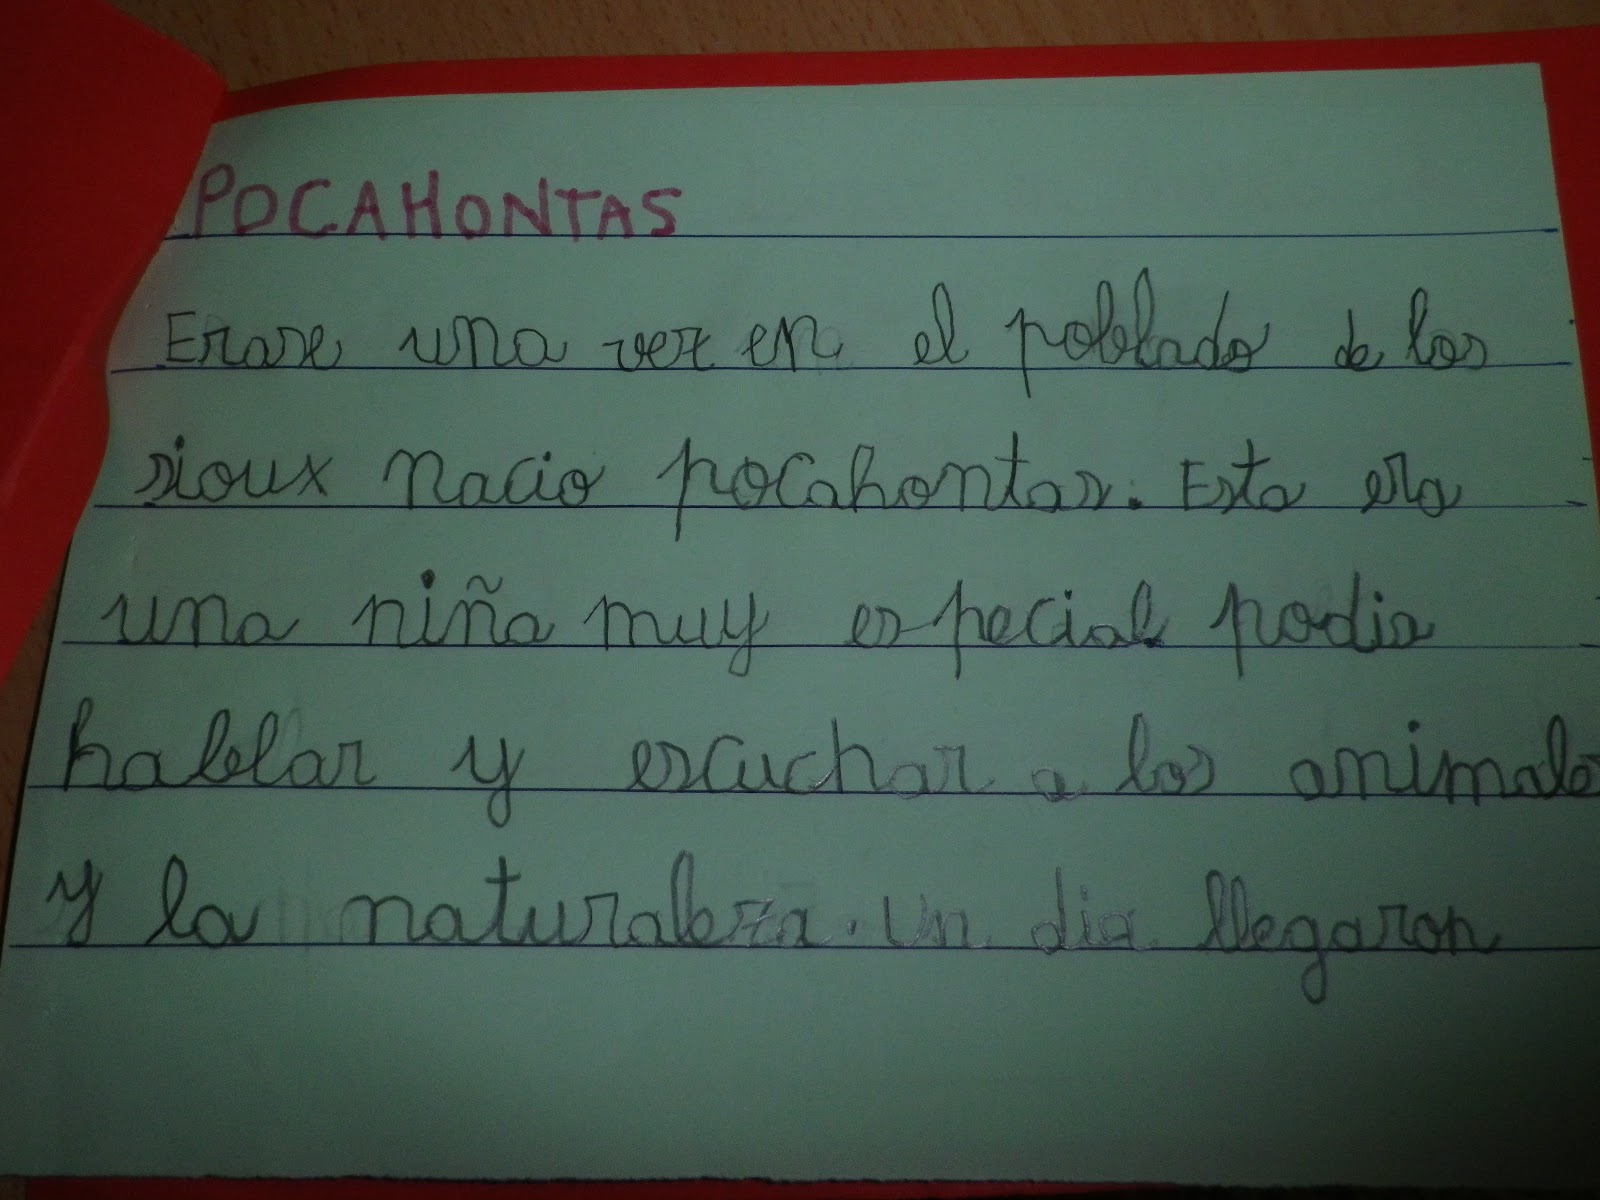 POCAHONTAS
Erase una vez en el poblado de los
sioux nacio pocahontas. Esta era
una niña muy especial podia
hablar y escuchar a los animales
y la naturaleza. Un dia llegaron